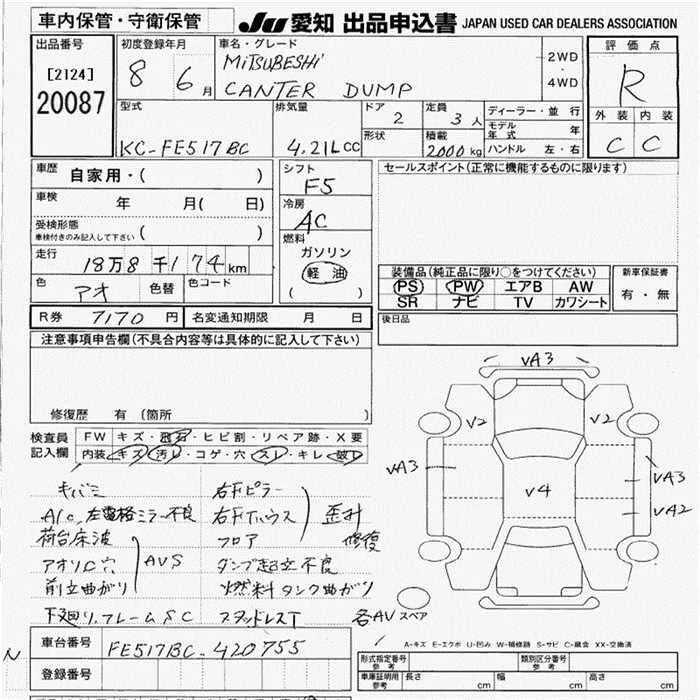 車内保管・守衛保管
JU 愛知 出品申込書 JAPAN USED CAR DEALERS ASSOCIATION
出品番号
[2124]
20087
初度登録年月
8 6月
車名・グレード
MiTSUBESHi
CANTER DUMP
2WD
4WD
評価点
R
外装 内装
C C
型式
KC-FE517BC
排気量
4.21L cc
ドア
2
形状
定員
3人
積載
2000kg
ディーラー・並行
モデル年式 年
ハンドル 左・右
車歴 自家用・( )
車検 年 月( 日)
受検形態
車検付きのみ記入して下さい ( )
走行
18万8千174km
色 アオ 色替 色コード
シフト
F5
冷房
AC
燃料
ガソリン
軽油
( )
セールスポイント(正常に機能するものに限ります)
装備品(純正品に限り○をつけてください)
PS PW エアB AW
SR ナビ TV カワシート
新車保証書
有・無
後日品
R券 7170円 名変通知期限 月 日
注意事項申告欄(不具合内容等は具体的に記入して下さい)
修復歴 有(箇所 )
検査員記入欄
FW キズ・飛石・ヒビ割・リペア跡・X要
内装 キズ・汚レ・コゲ・穴・スレ・キレ・破レ
キバミ
A/C, 左電格ミラー不良
荷台床波
アオリロ穴
前立曲がり
AVS
下廻り、フレームSC
右Fピラー
右Fハウス
フロア
歪み
修復
ダンプ起立不良
燃料タンク曲がり
スタッドレスT
各AV
スペア
VA3
V2
V2
VA3
V4
VA3
VA2
A-キズ E-エクボ U-凹み W-補修跡 S-サビ C-腐食 XX-交換済
N
車台番号 FE517BC-420755
登録番号
形式指定番号
参考
類別区分番号
参考
車庫証明用
参考
長さ cm 幅 cm 高さ cm